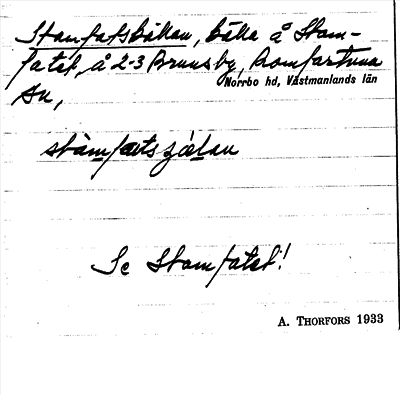 Stamfatskällan, källa å Stam-
fatet, å 2-3 Brunsby, Romfartuna
Norrbo hd, Västmanlands län
sn,
Se Stamfatet!
A. THORFORS 1933